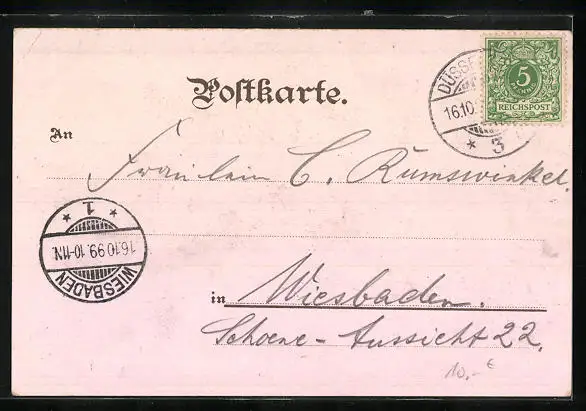 Postkarte.
DÜSSE
16.10.
* 3
5
PFENNIG
REICHSPOST
An
Fräulein C. Rumswinkel.
* 1 *
16.10.99.10-11N.
WIESBADEN
in Wiesbaden.
Schoene-Aussicht 22.
10,- €